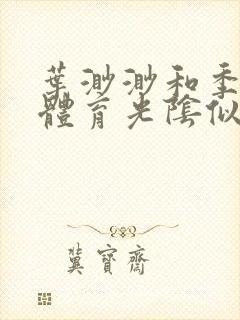 葉渺渺和季
體育光陰似
冀寶齋